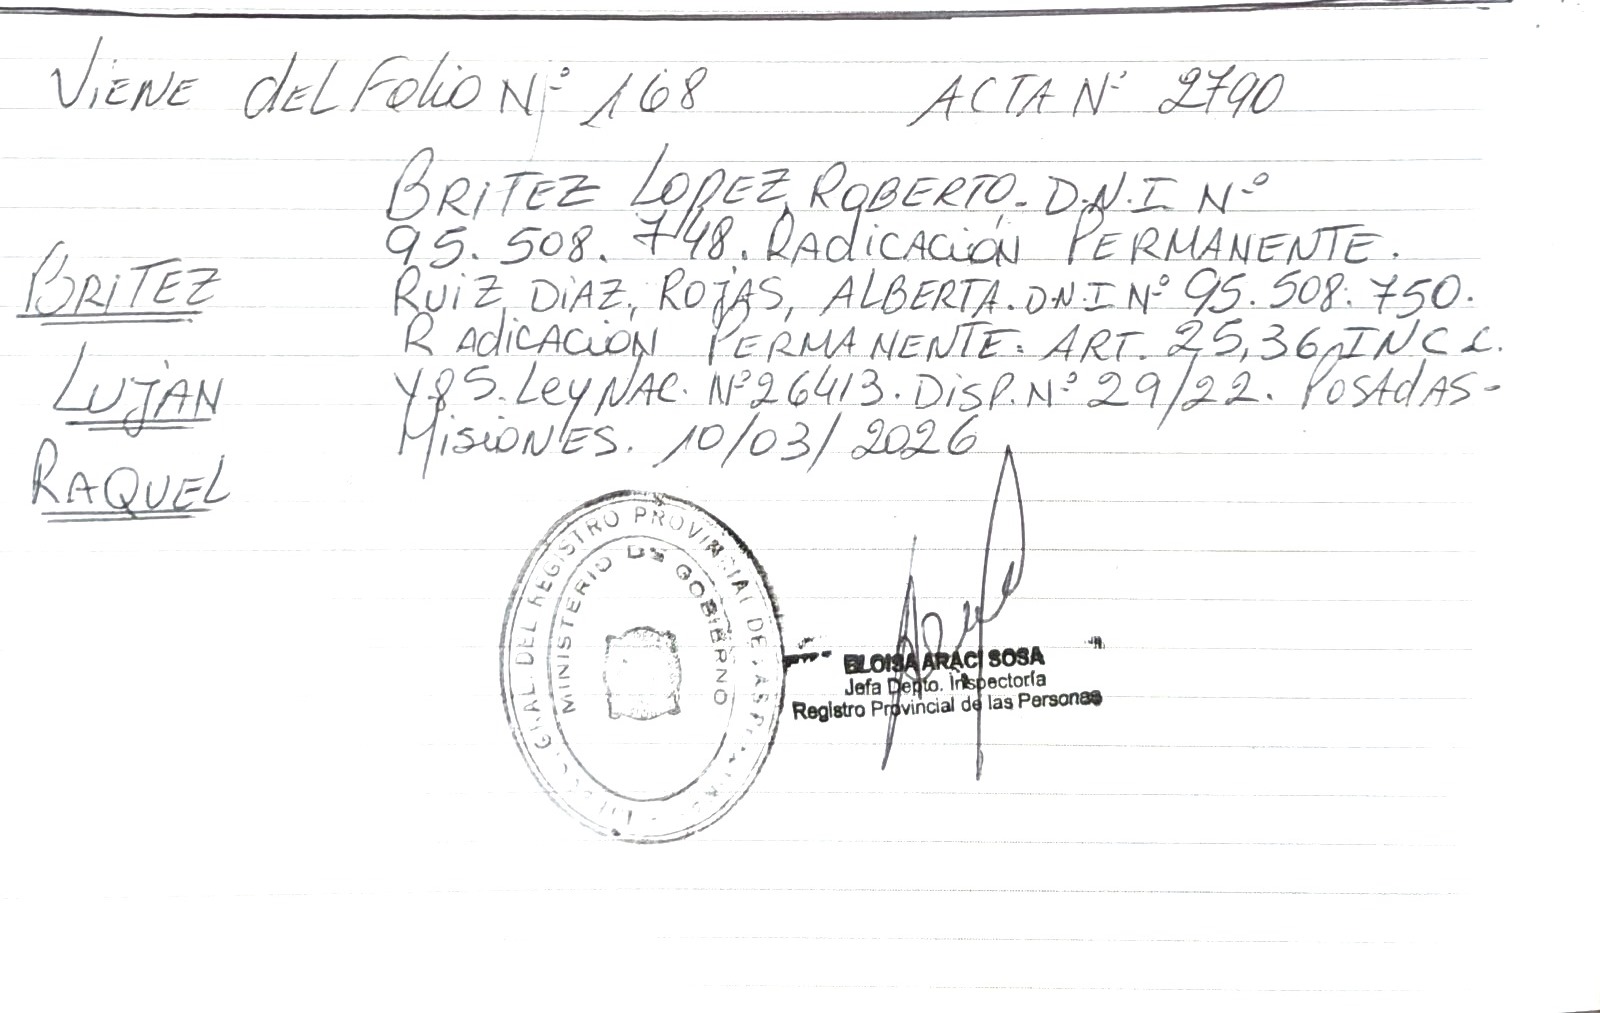 Viene del Folio Nº 168 ACTA Nº 2790
BRITEZ LOPEZ, ROBERTO. D.N.I Nº
95.508.748. RAdicACión PERMANENTE.
BRITEZ
RUIZ DIAZ, ROJAS, ALBERTA. D.N.I Nº 95.508.750.
RAdicACión PERMANENTE. ART. 25,36, INC C.
LUJAN
Y 85. Ley NAC. Nº 26413. DISP. Nº 29/22. POSAdAS-
MisioNES. 10/03/2026
RAQUEL
GRAL. DEL REGISTRO PROVINCIAL DE LAS
MINISTERIO DE GOBIERNO
ELOISA ARACI SOSA
Jefa Depto. Inspectoría
Registro Provincial de las Personas